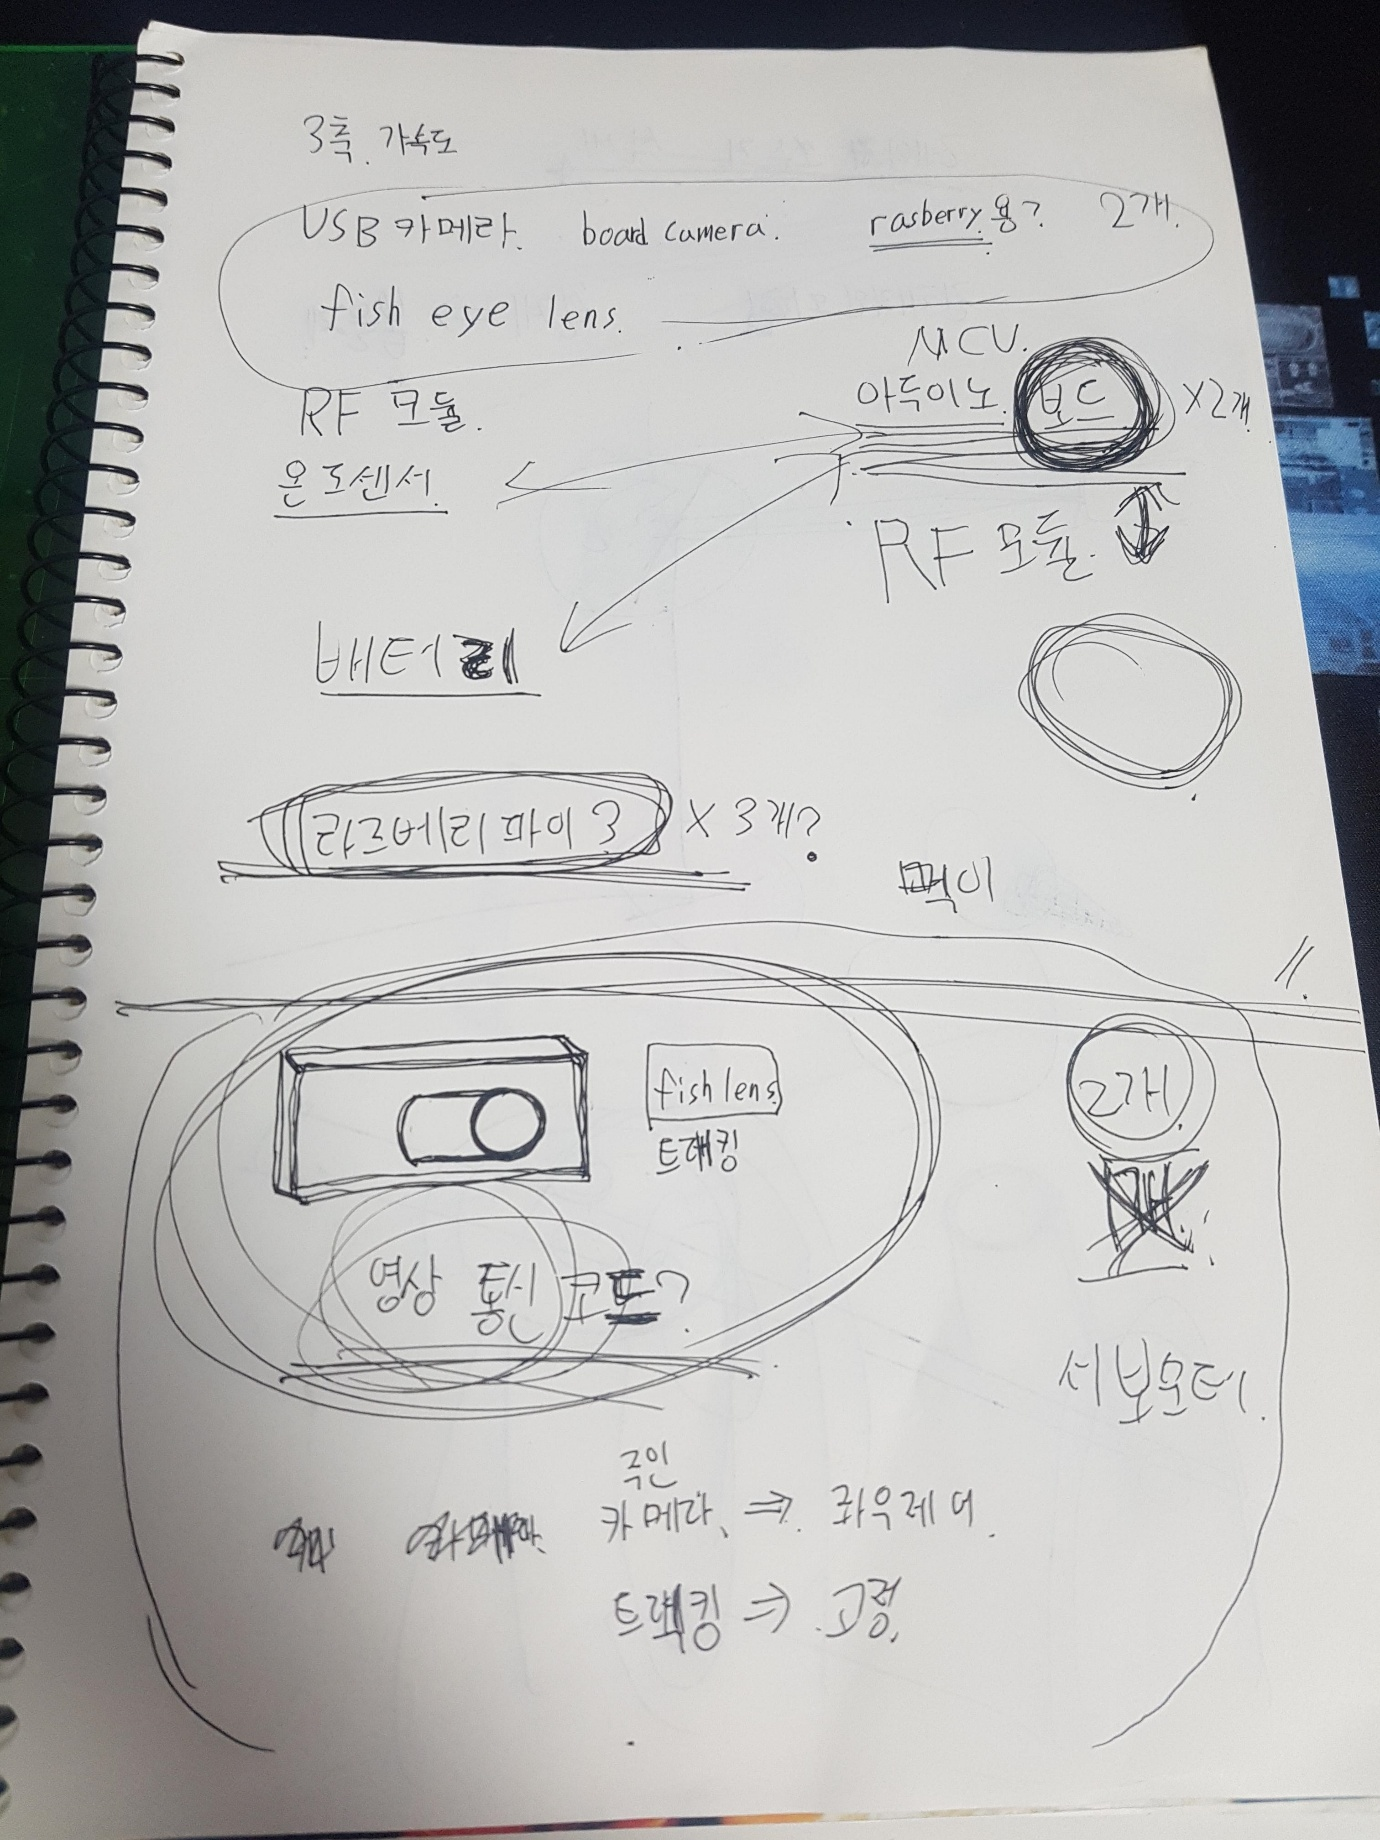 3축. 가속도
USB 카메라. board camera. rasberry용? 2개.
fish eye lens.
MCU.
RF 모듈. 아두이노 보드 X2개
온도센서.
RF 모듈.
배터리
라즈베리파이3 X 3개?
먹이
fish lens 2개
트래킹
영상 통신 코드?
서보모터.
주인
카메라. ⇒ 좌우제어.
트래킹 ⇒ 고정.